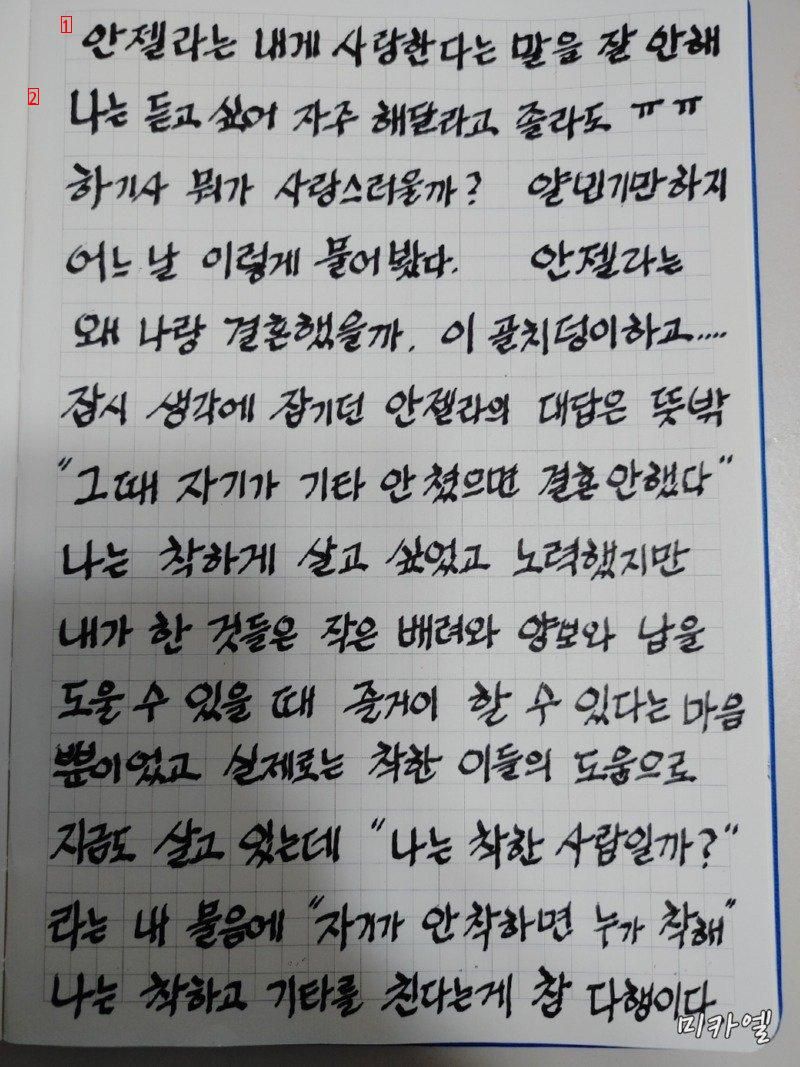 1
안젤라는 내게 사랑한다는 말을 잘 안해
2
나는 듣고 싶어 자주 해달라고 졸라도 ㅠㅠ
하기사 뭐가 사랑스러울까? 얄밉기만하지
어느 날 이렇게 물어봤다. 안젤라는
왜 나랑 결혼했을까. 이 골치덩이하고....
잠시 생각에 잠기던 안젤라의 대답은 뜻밖
"그때 자기가 기타 안 쳤으면 결혼 안했다"
나는 착하게 살고 싶었고 노력했지만
내가 한 것들은 작은 배려와 양보와 남을
도울 수 있을 때 즐거이 할 수 있다는 마음
뿐이었고 실제로는 착한 이들의 도움으로
지금도 살고 있는데 "나는 착한 사람일까?"
라는 내 물음에 "자기가 안 착하면 누가 착해"
나는 착하고 기타를 친다는게 참 다행이다
미카엘